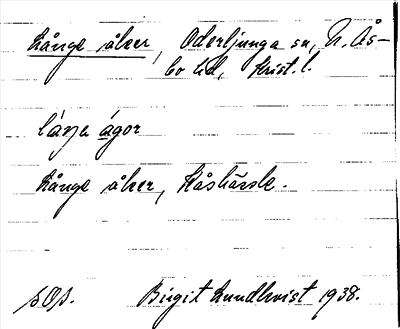 Långe åker, Oderljunga sn, N. Ås-
bo hd, Krist. l.
långe ågor
Långe åker, Kåshärda.
Birgit Lundkvist 1938.